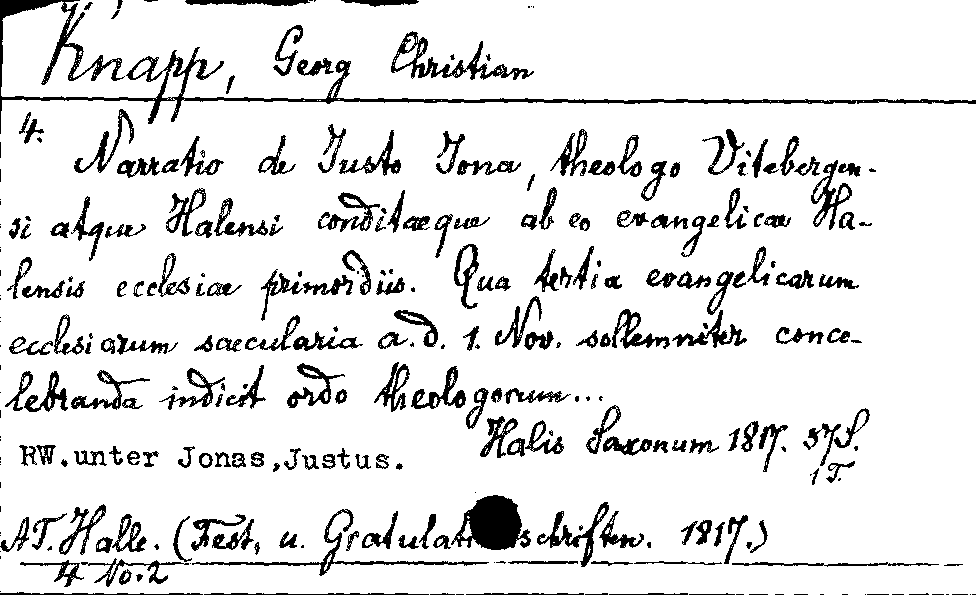 Knapp, Georg Christian
4.
Narratio de Justo Jona, theologo Vitebergen-
si atque Halensi conditaeque ab eo evangelicae Ha-
lensis ecclesiae primordiis. Qua tertia evangelicarum
ecclesiarum saecularia a.d. 1. Nov. sollemniter conce-
lebranda indicit ordo theologorum...
Halis Saxonum 1817. 37S.
1 T.
RW.unter Jonas,Justus.
AT. Halle. (Fest, u. Gratulati schriften. 1817.)
4 No.2